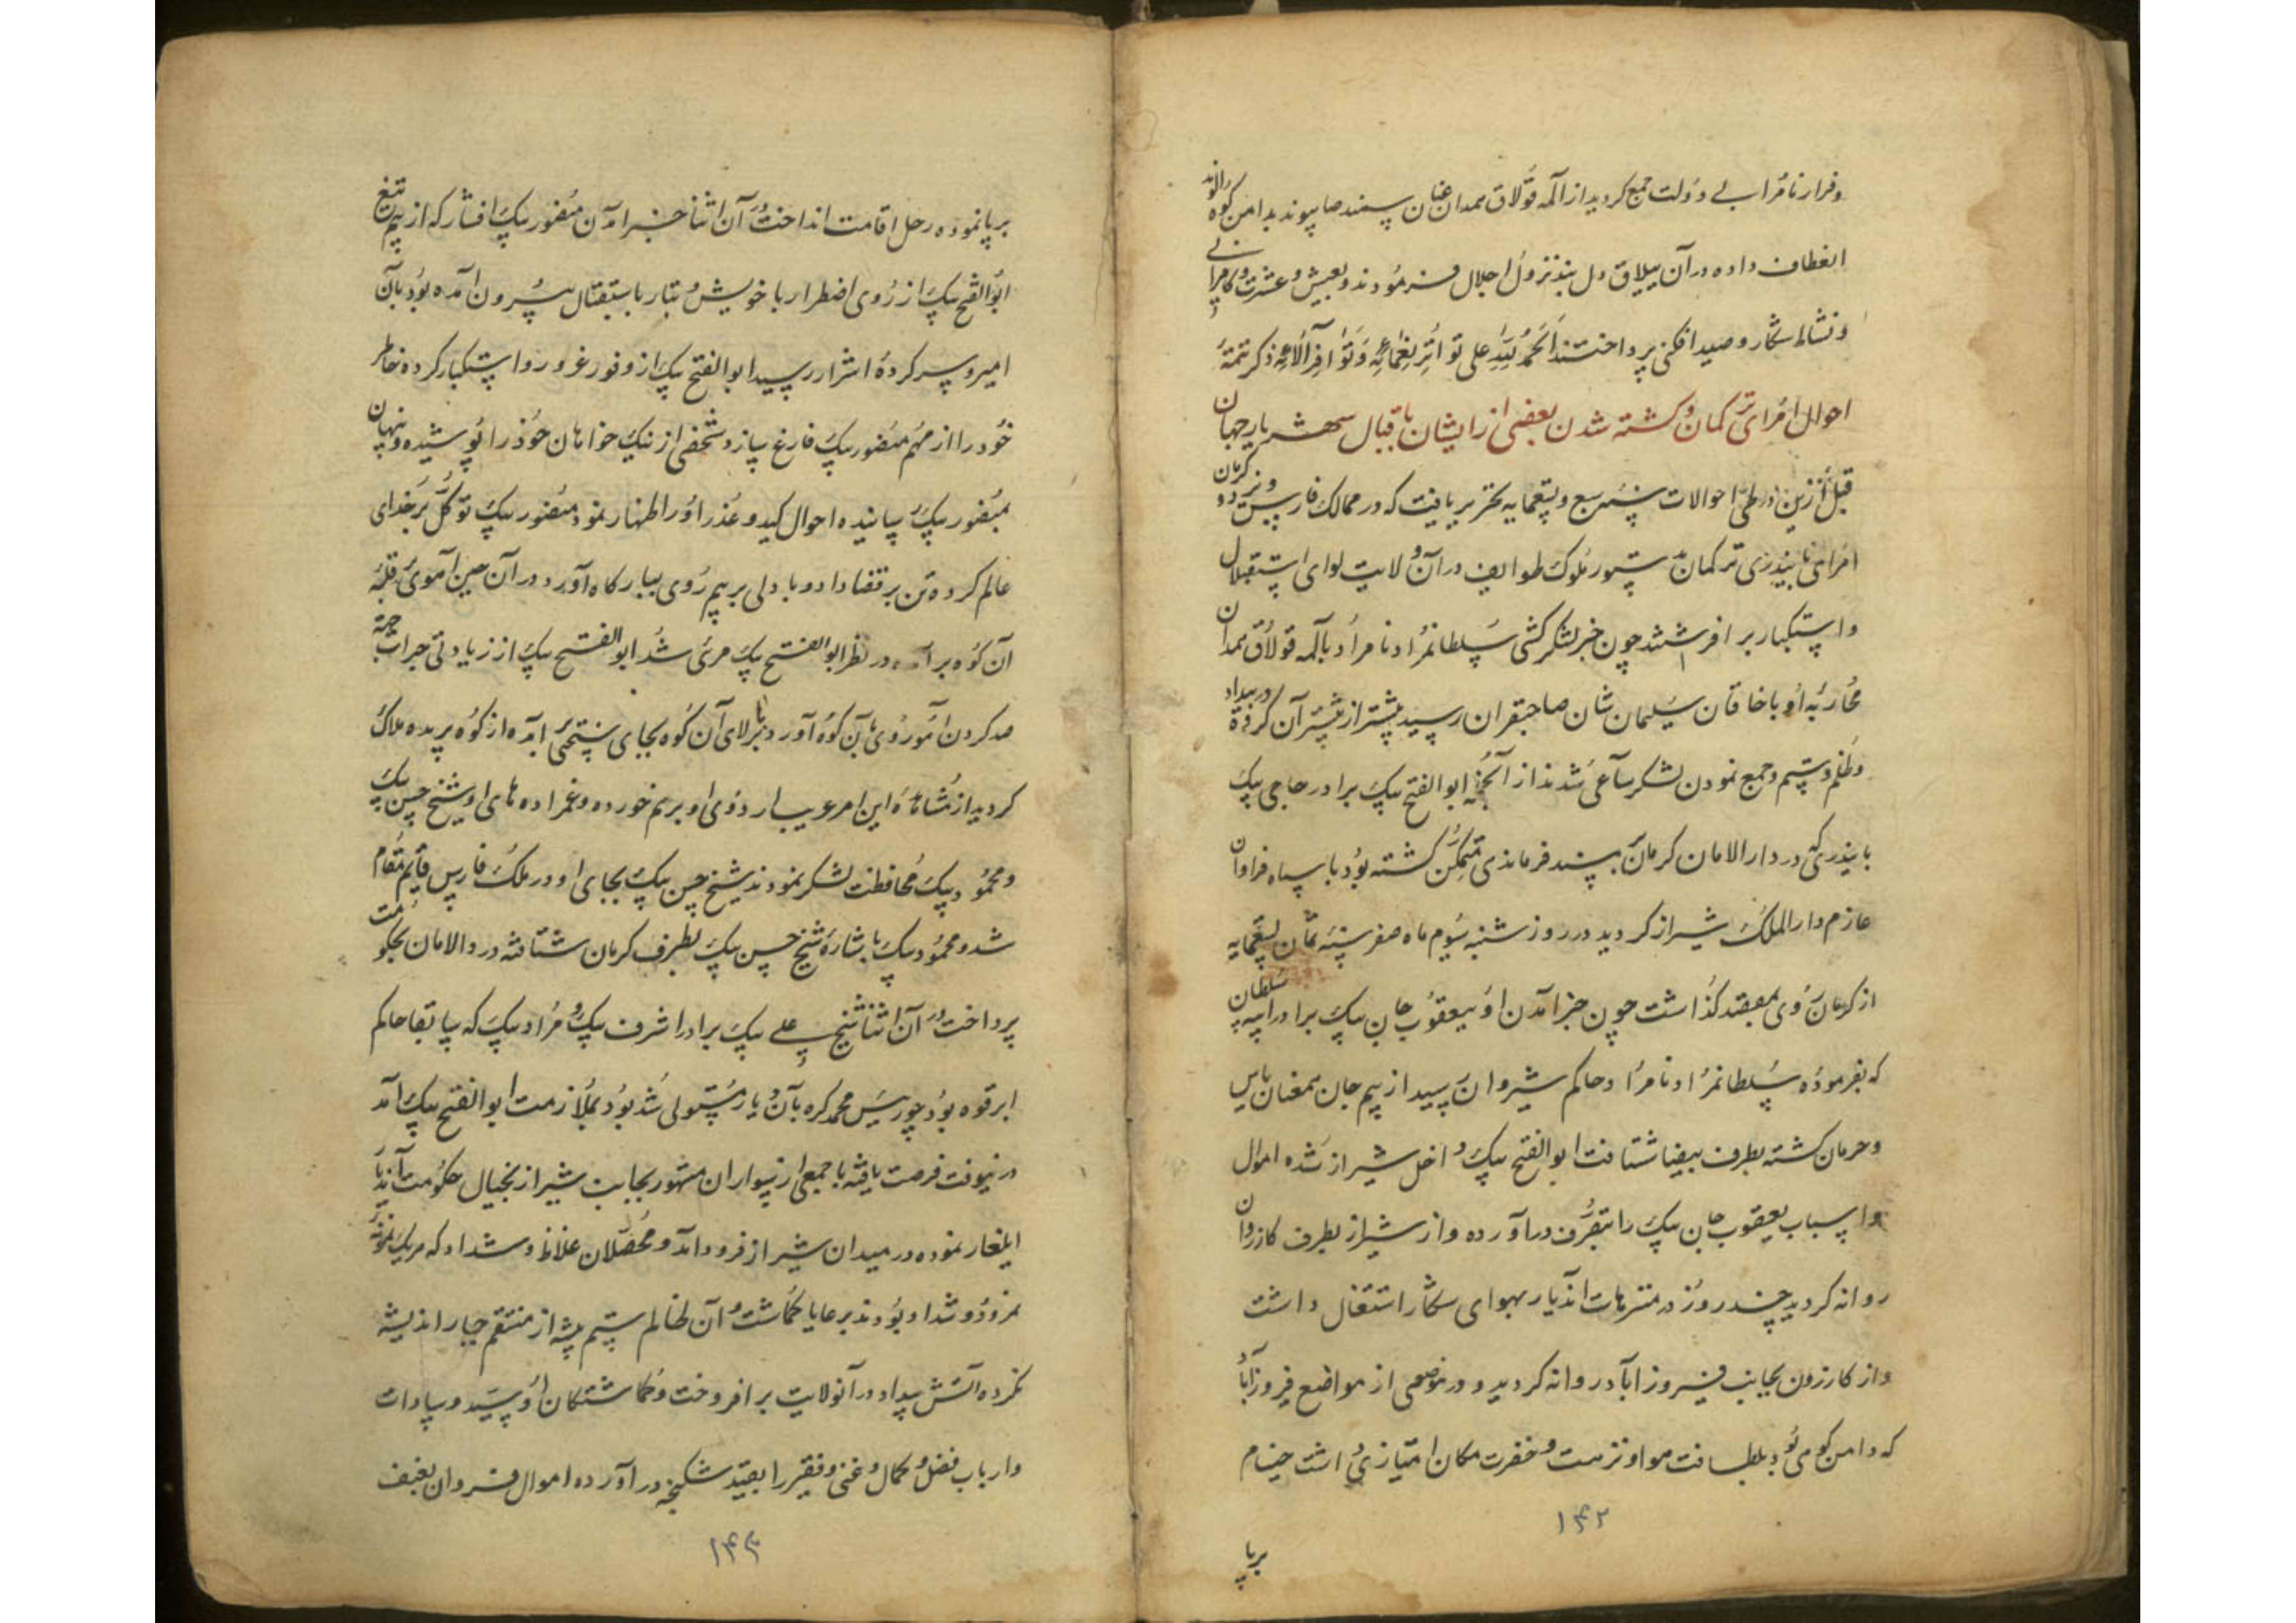 و فرار نامراد بے دولت جمع کردید از آلمه قولاق همدان عنان سمند صبا پیوند بدامن کوه الوند
انعطاف داده در آن ییلاق دل پسند نزول اجلال فرمودند و بعیش و عشرت و کامرانے
و نشاط شکار و صید افکنی پرداختند الحمد لله علی تواتر نعمائه و توافر آلائه ذکر تتمهٔ
احوال امرای ترکمان و کشته شدن بعضی از ایشان باقبال شهریار جهان
قبل ازین در طی احوالات سنه سبع و تسعمایه تحریر یافت که در ممالک فارس و یزد و کرمان
امرای بایندری ترکمان بدستور ملوک طوایف در آن ولایت لوای استقلال
و استکبار بر افراشتند چون خبر لشکر کشی سلطانمراد نامراد بآلمه قولاق همدان
محاربهٔ او با خاقان سلیمان شان صاحبقران رسید بیشتر از پیشتر آن کروه در بیداد
و ظلم و ستم و جمع نمودن لشکر ساعی شدند از آنجمله ابوالفتح بیک برادر حاجی بیک
بایندر که در دارالامان کرمان بمسند فرماندهی متمکن کشته بود با سپاه فراوان
عازم دارالملک شیراز کردید در روز شنبه سوم ماه صفر سنه ثمان تسعمایه
از کرمان روی بمقصد کذاشت چون خبر آمدن او بیعقوب جان بیک برادر ایبه سلطان
که بفرمودهٔ سلطانمراد نامراد حاکم شیراز بود رسید از بیم جان همعنان یاس
و حرمان کشته بطرف بیضا شتافت ابوالفتح بیک داخل شیراز شده اموال
و اسباب یعقوب جان بیک را بتصرف در آورده و از شیراز بطرف کازرون
روانه کردید چند روز در متنزهات آندیار بهوای شکار اشتغال داشت
و از کازرون بجانب فیروزاباد روانه کردید و در موضعی از مواضع فیروزآباد
که دامن کوهی بود بلطافت هوا و نزهت و خضرت مکان امتیازی داشت خیام
۱۴۲
برپا
برپا نموده رحل اقامت انداخت و در آن اثنا خبر آمدن منصور بیک افشار که از بیم تیغ
ابوالفتح بیک از روی اضطرار با خویش و تبار باستقبال بیرون آمده بود بآن
امیر و سرکردهٔ اشرار رسید ابوالفتح بیک از وفور غرور و استکبار کرده خاطر
خود را از مهم منصور بیک فارغ سازد شخصی از نیک خواهان خود را پوشیده و پنهان
بمنصور بیک رسانیده احوال کید و غدر او را اظهار نمود منصور بیک توکل بر خدای
عالم کرده تن بر قضا داد و با دلی پر بیم روی ببارکاه آورد در آن حین آهوی بقلهٔ
آن کوه بر آمده در نظر ابوالفتح بیک مرئی شد ابوالفتح بیک از زیادتی جرات بجهة
صید کردن آهو روی بآن کوه آورد بر بالای آن کوه بجای سختی آمده از کوه پریده هلاک
کردید از مشاهدهٔ این امر عریب اردوی او برهم خورده و عمزاده های او شیخ حسن بیک
و محمود بیک محافظت لشکر نمودند شیخ حسن بیک بجای او در ملک فارس قایم مقام
شد و محمود بیک باشارهٔ شیخ حسن بیک بطرف کرمان شتافته در دارالامان بحکومت
پرداخت در آن اثنا شیخ علے بیک برادر اشرف بیک و مراد بیک که سابقا حاکم
ابرقوه بود چو رئیس محمد کره بآن دیار مستولی شد بود بملازمت ابوالفتح بیک آمد
در نیوقت فرصت یافته با جمعی از سواران متهور بجانب شیراز بخیال حکومت آندیار
ایلغار نموده در میدان شیراز فرود آمد و محصلان غلاظ و شداد که هریک نمونهٔ
نمرود و شداد بودند بر عایا کماشت و آن ظالم ستم پیشه از منتقم جبار اندیشه
نکرده آتش بیداد در آنولایت بر افروخت و کماشتکان او سید و سادات
و ارباب فضل و کمال و غنی و فقیر را بقید شکنجه در آورده اموال فروان بعنف
۱۴۳